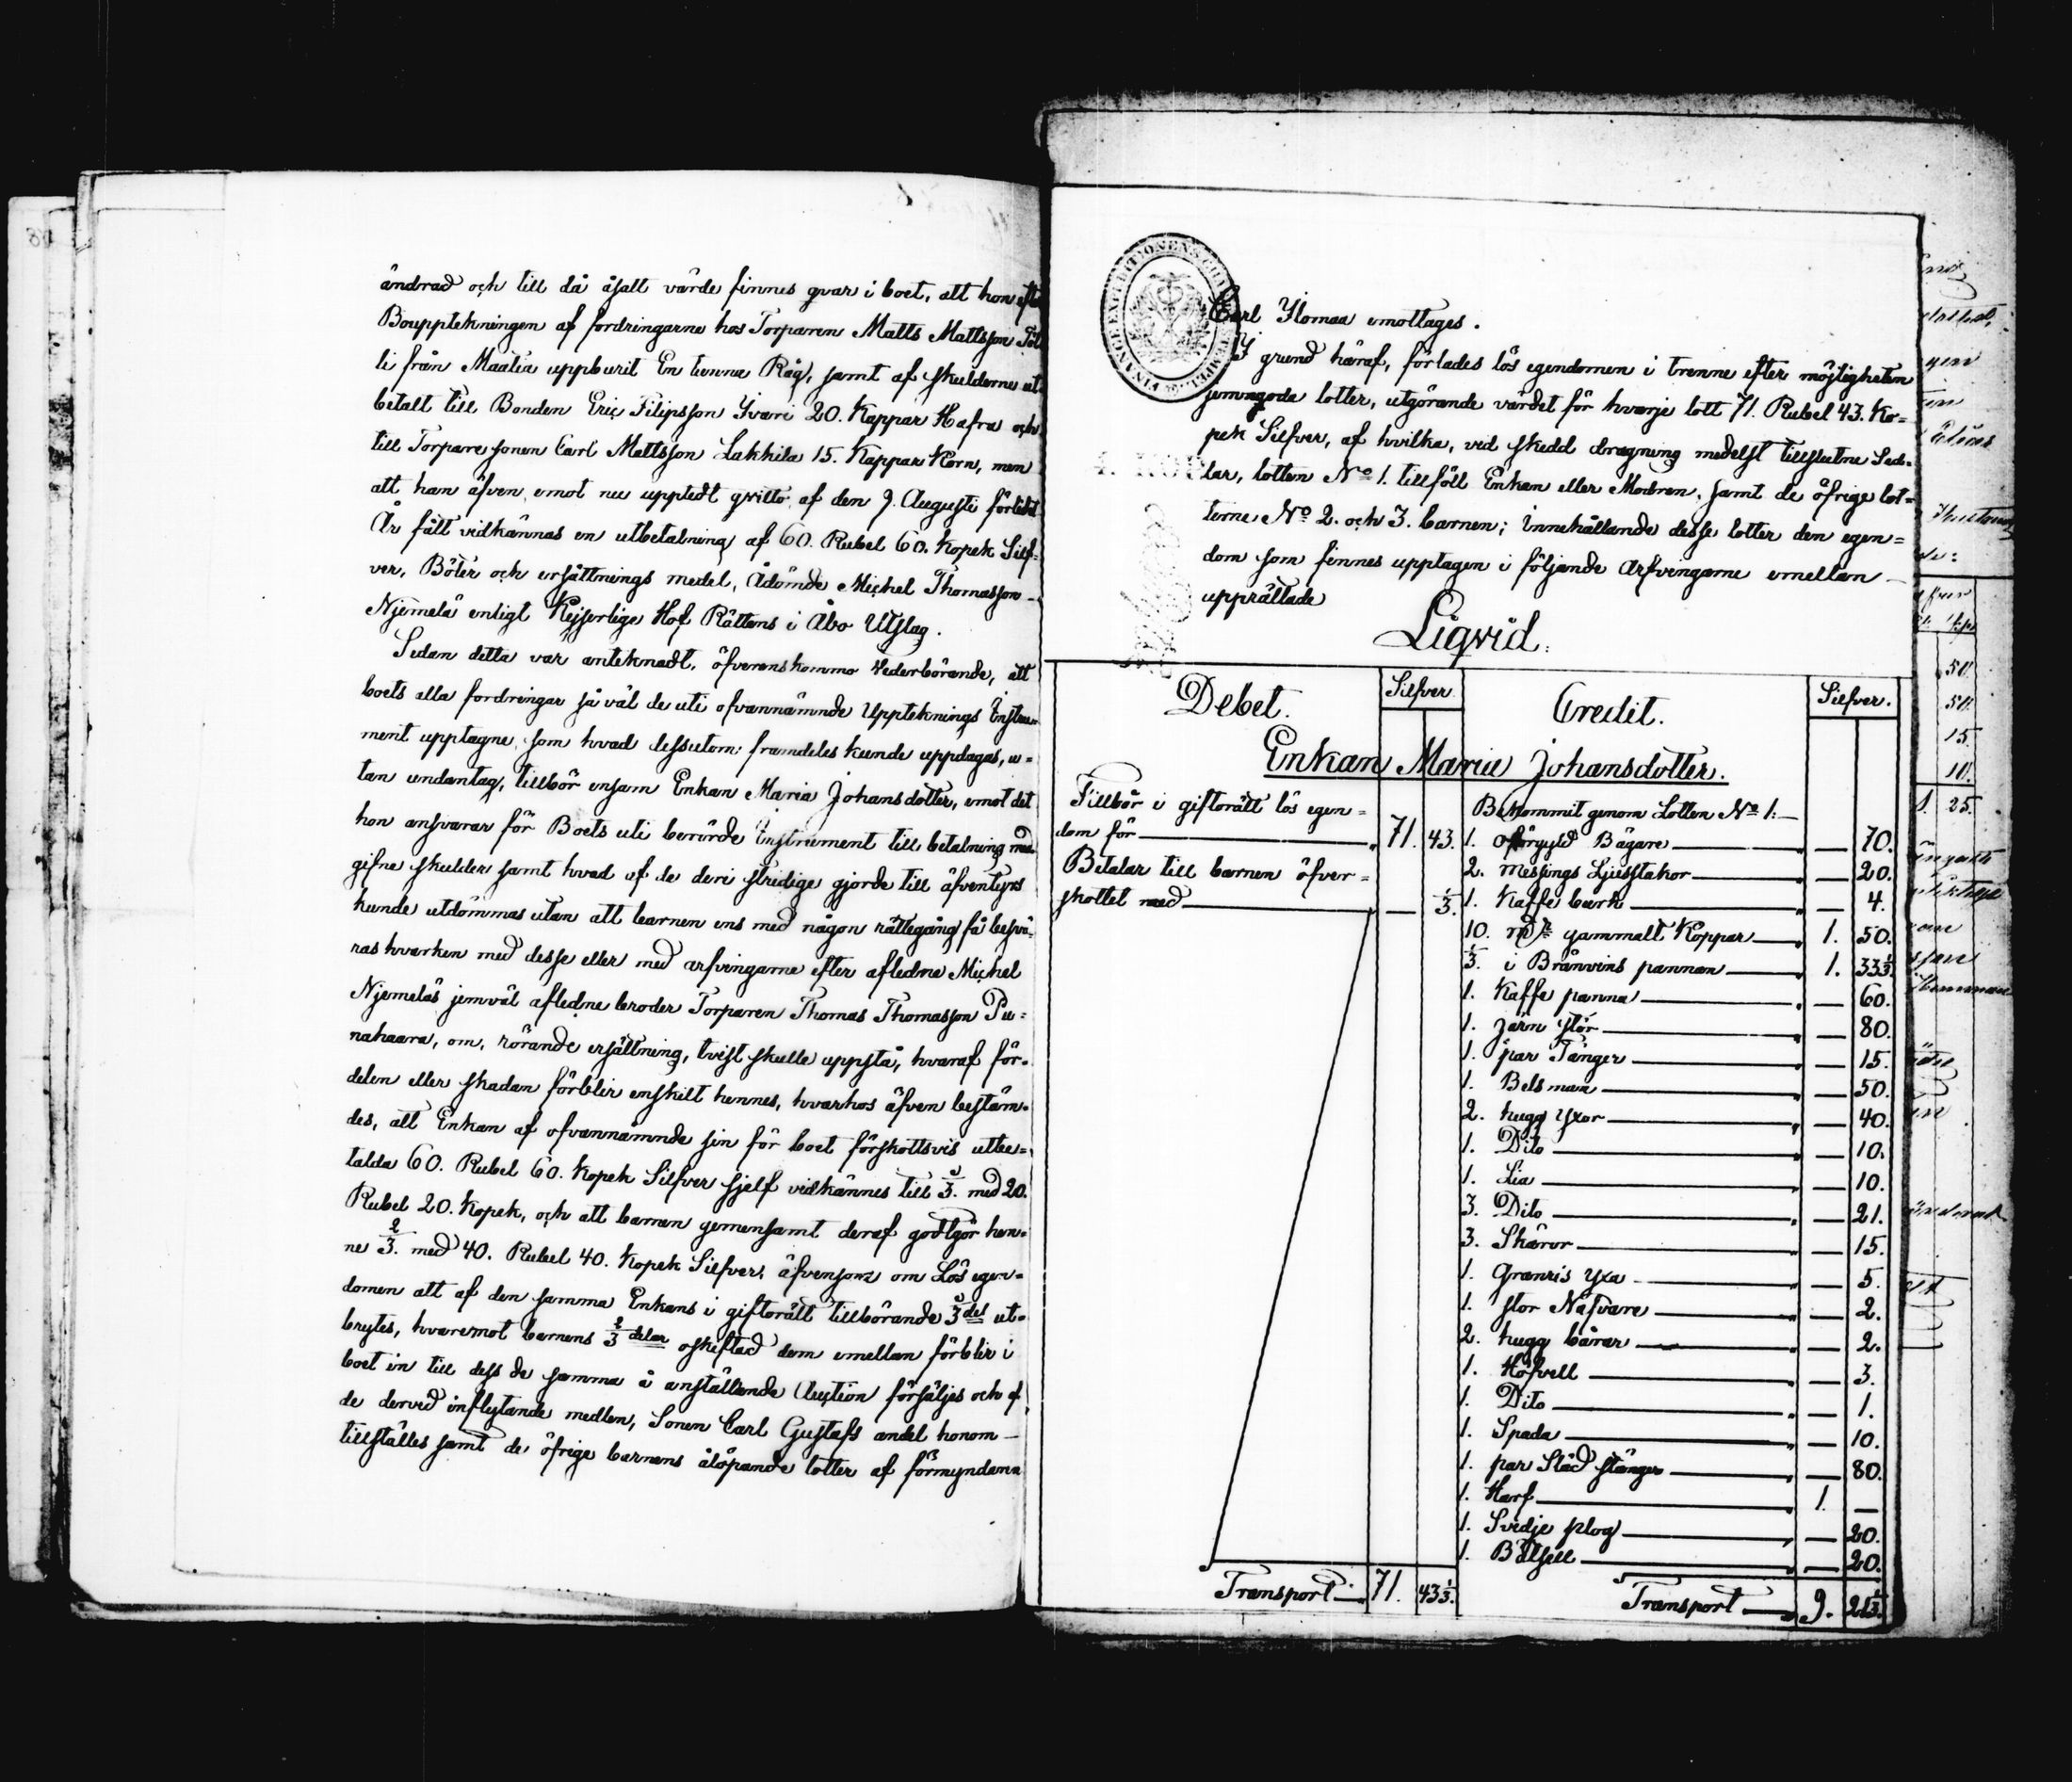 ändrad och till då åsatt värde finnes qvar i boet, att hon efter
Bouppteckningen af fordringarne hos Torparen Matts Mattsson
li från Maatia uppburit En tunna Råg, samt af skulderne ut
betalt till Bonden Eric Filipsson Yvari 20. Kappar Hafra och
till Torpare sonen Carl Mattsson Lakkila 15. Kappar Korn, men
att han äfven emot nu upptedt qvitto af den 9. Augusti förledit
År fått vidkännas en utbetalning af 60. Rubel 60. Kopek Silf=
ver, Böter och ersättnings medel, Ådömde Michel Thomasson
Njemelä enligt Kejserlige Hof Rättens i Åbo Utslag.
Sedan detta var anteknadt, öfverenskommo Vederbörande, att
boets alla fordringar så väl de uti ofvannämnde Uppteknings Instru=
ment upptagne, som hvad dessutom framdeles kunde uppdagas, u=
tan undantag, tillhör ensam Enkan Maria Johansdotter, emot det
hon ansvarar för Boets uti berörde Instrument till betalning med
gifne skulder samt hvad af de deri stridige gjorde till äfventyrs
kunde utdömmas utan att barnen ens med någon rättegång få besvä=
ras hvarken med desse eller med arfvingarne efter afledne Michel
Njemeläs jemväl afledne broder Torparen Thomas Thomasson Pu=
nahaara, om, rörande ersättning, tvist skulle uppstå, hvaraf för=
delen eller skadan förblir enskilt hennes, hvarhos äfven bestäm=
des, att Enkan af ofvannämnde sin för boet förskottsvis utbe=
talda 60. Rubel 60. Kopek Silfver sjelf vidkännes till 1/3. med 20.
Rubel 20. Kopek, och att barnen gemensamt deraf godtgör hen=
ne 2/3. med 40. Rubel 40. Kopek Silfver, äfvensom om Lös egen=
domen att af den samma Enkans i giftorätt tillhörande 1/3 del ut=
brytes, hvaremot barnens 2/3 delar oskiftad dem emellan förblir i
boet in till dess de samma å anställande Auction försäljes och af
de dervid inflytande medlen, Sonen Carl Gustafs andel honom
tillställes samt de öfrige barnensålöpande lotter af förmyndaren
Carl Ylomaa emottages.
I grund häraf, förlades lös egendomen i trenne efter möjligheten
jemngoda lotter, utgörande värdet för hvarje lott 71. Rubel 43. Ko=
pek Silfver, af hvilka, vid skedd dragning medelst tillslutne Sed=
lar, lotten No 1. tillföll Enkan eller Modren, samt de öfrige lot=
terne No 2. och 3. barnen; innehållande desse lotter den egen=
dom som finnes upptagen i följande Arfvingarne emellan
upprättade
Liqvid.
Debet. Silfver. Credit. Silfver.
Enkan Maria Johansdotter.
Tillhör i giftorätt lös egen=
dom för 71. 43.
Betalar till barnen öfver=
skottet med — 1/3.
Transport 71. 43 1/3.
Bekommit genom Lotten No 1:
1. oförgyld Bägare — 70.
2. Messings Ljusstakar — 20.
1. Kaffe bark — 4.
10. gammalt Koppar 1. 50.
1/3. i Bränvins pannan 1. 33 1/3.
1. Kaffe panna — 60.
1. Järn stör — 80.
1. par Tänger — 15.
1. Betsman — 50.
2. hugg yxor — 40.
1. Dito — 10.
1. Lia — 10.
3. Dito — 21.
3. Skäror — 15.
1. Granris yxa — 5.
1. stor Nafvare — 2.
2. hugg bårar — 2.
1. Höfvell — 3.
1. Dito — 1.
1. Spada — 10.
1. par Släd stänger — 80.
1. Harf 1. —
1. Svedje plog — 20.
1. Båthell — 20.
Transport 9. 21 1/3.